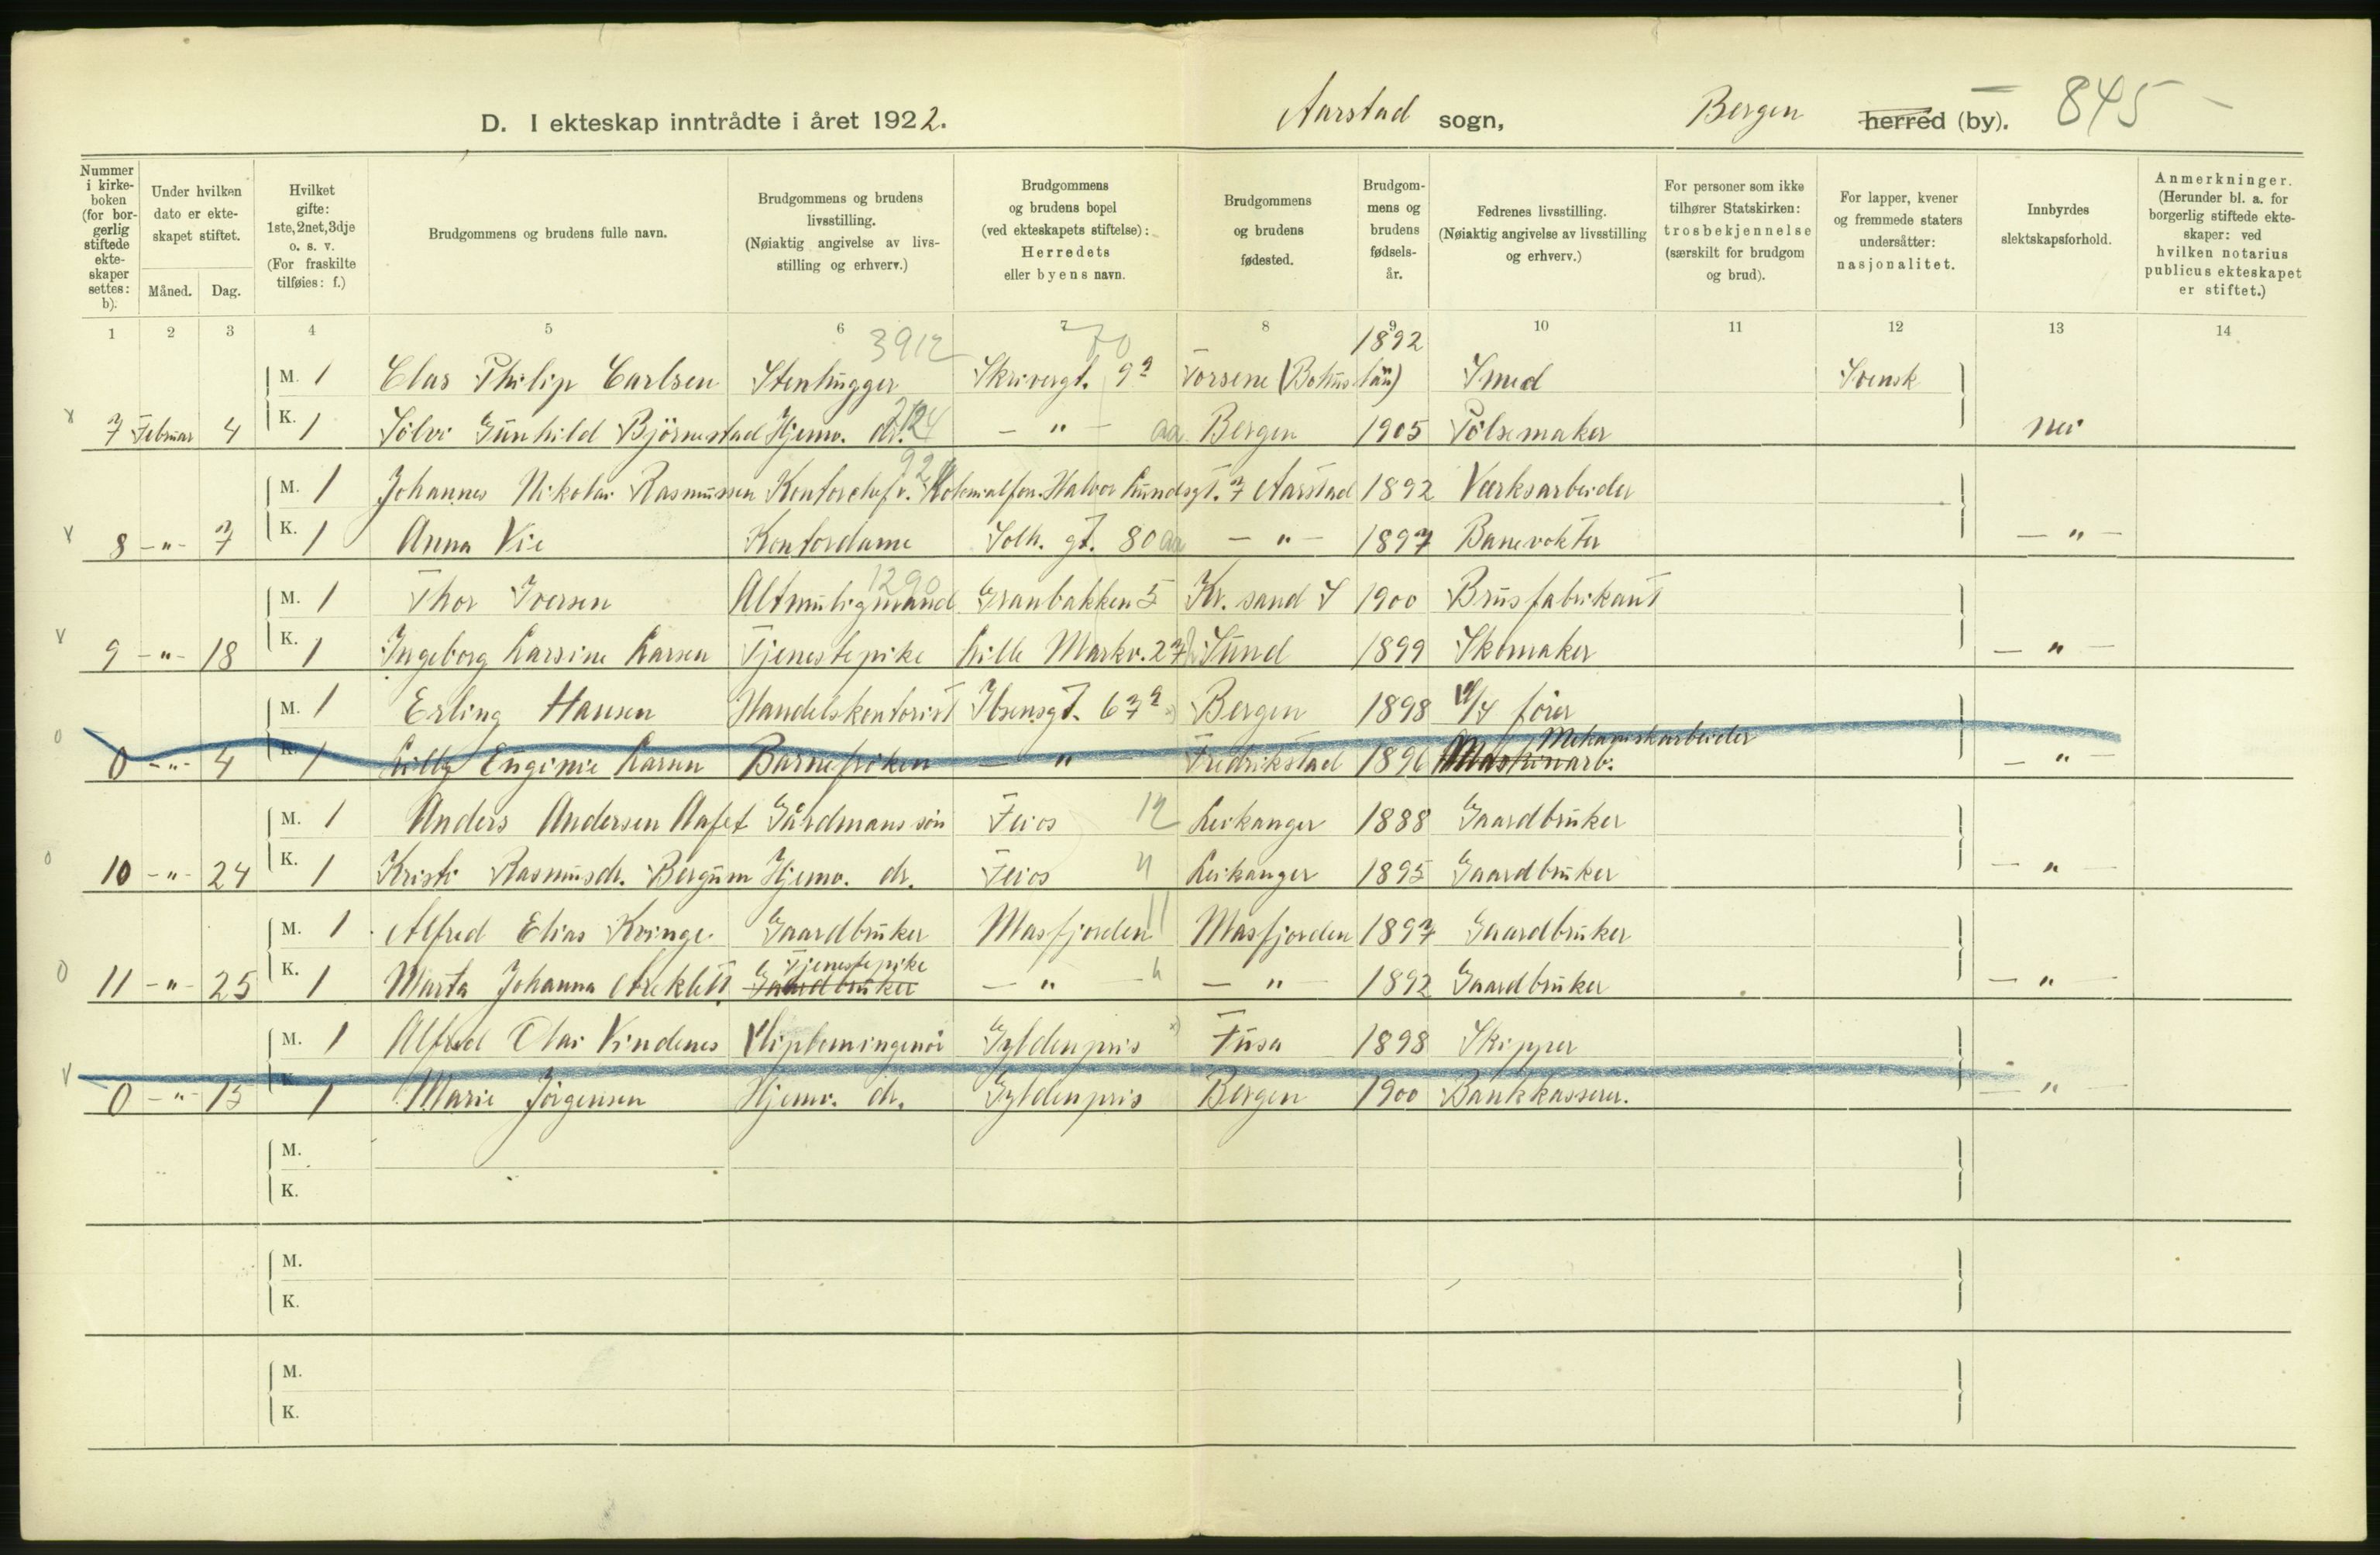 D. I ekteskap inntrådte i året 1922. Aarstad sogn, Bergen herred (by). 845
Nummer i kirke-boken (for bor-gerlig stiftede ekte-skaper settes: b).
Under hvilken dato er ekte-skapet stiftet.
Måned. Dag.
Hvilket gifte: 1ste, 2net, 3dje o. s. v. (For fraskilte tilføies: f.)
Brudgommens og brudens fulle navn.
Brudgommens og brudens livsstilling. (Nøiaktig angivelse av livs-stilling og erhverv.)
Brudgommens og brudens bopel (ved ekteskapets stiftelse): Herredets eller byens navn.
Brudgommens og brudens fødested.
Brudgom-mens og brudens fødsels-år.
Fedrenes livsstilling. (Nøiaktig angivelse av livsstilling og erhverv.)
For personer som ikke tilhører Statskirken: trosbekjennelse (særskilt for brudgom og brud).
For lapper, kvener og fremmede staters undersåtter: nasjonalitet.
Innbyrdes slektskapsforhold.
Anmerkninger. (Herunder bl. a. for borgerlig stiftede ekte-skaper: ved hvilken notarius publicus ekteskapet er stiftet.)
1 2 3 4 5 6 7 8 9 10 11 12 13 14
3912 70
M. 1 Clas Philip Carlsen Stenhugger Skrivergt. 9a Torsene (Bohus län) 1892 Smed Svensk
7 Februar 4 K. 1 Sölvi Gunhild Björnestad Hjemv. dr. 2124 — " — aa Bergen 1905 Pölsemaker nei
M. 1 Johannes Nikolai Rasmussen Kontorchef v. Kolonialfor. Halvor Lundsgt. 7 Aarstad 1892 Værksarbeider
8 — " — 7 K. 1 Anna Vie Kontordame Solh. gt. 80 aa — " — 1897 Banevokter — " —
1290
M. 1 Thor Iversen Altmuligmand Granbakken 5 Kr. sand S 1900 Brusfabrikant
9 — " — 18 K. 1 Ingeborg Larsine Larsen Tjenestepike Lille Markv. 27 Sund 1899 Skomaker — " —
M. 1 Erling Hansen Handelskontorist Ibsensgt. 67a Bergen 1898 förer
0 — " — 4 K. 1 Lilly Eugenie Larsen Barnefröken — " — Fredrikstad 1896 Maskinarb. Mekaniskarbeider — " —
M. 1 Anders Andersen Aafet Gårdmanssön Feios 12 Leikanger 1888 Gaardbruker
10 — " — 24 K. 1 Kristi Rasmusdr. Bergum Hjemv. dr. Feios " Leikanger 1895 Gaardbruker — " —
M. 1 Alfred Elias Kvinge Gaardbruker Masfjorden 11 Masfjorden 1897 Gaardbruker
11 — " — 25 K. 1 Marta Johanna Gaardbruker Tjenestepike — " — " — " — 1892 Gaardbruker — " —
M. 1 Alfred Olai Vindenes Diplomingeniör Gyldenpris Fusa 1898 Skipper
0 — " — 15 K. 1 Marie Jörgensen Hjemv. dr. Gyldenpris Bergen 1900 Bankkasserer. — " —
M.
K.
M.
K.
M.
K.